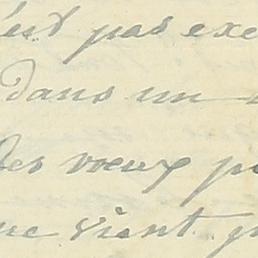 est pas exe
dans un
des vœux p
ue vient